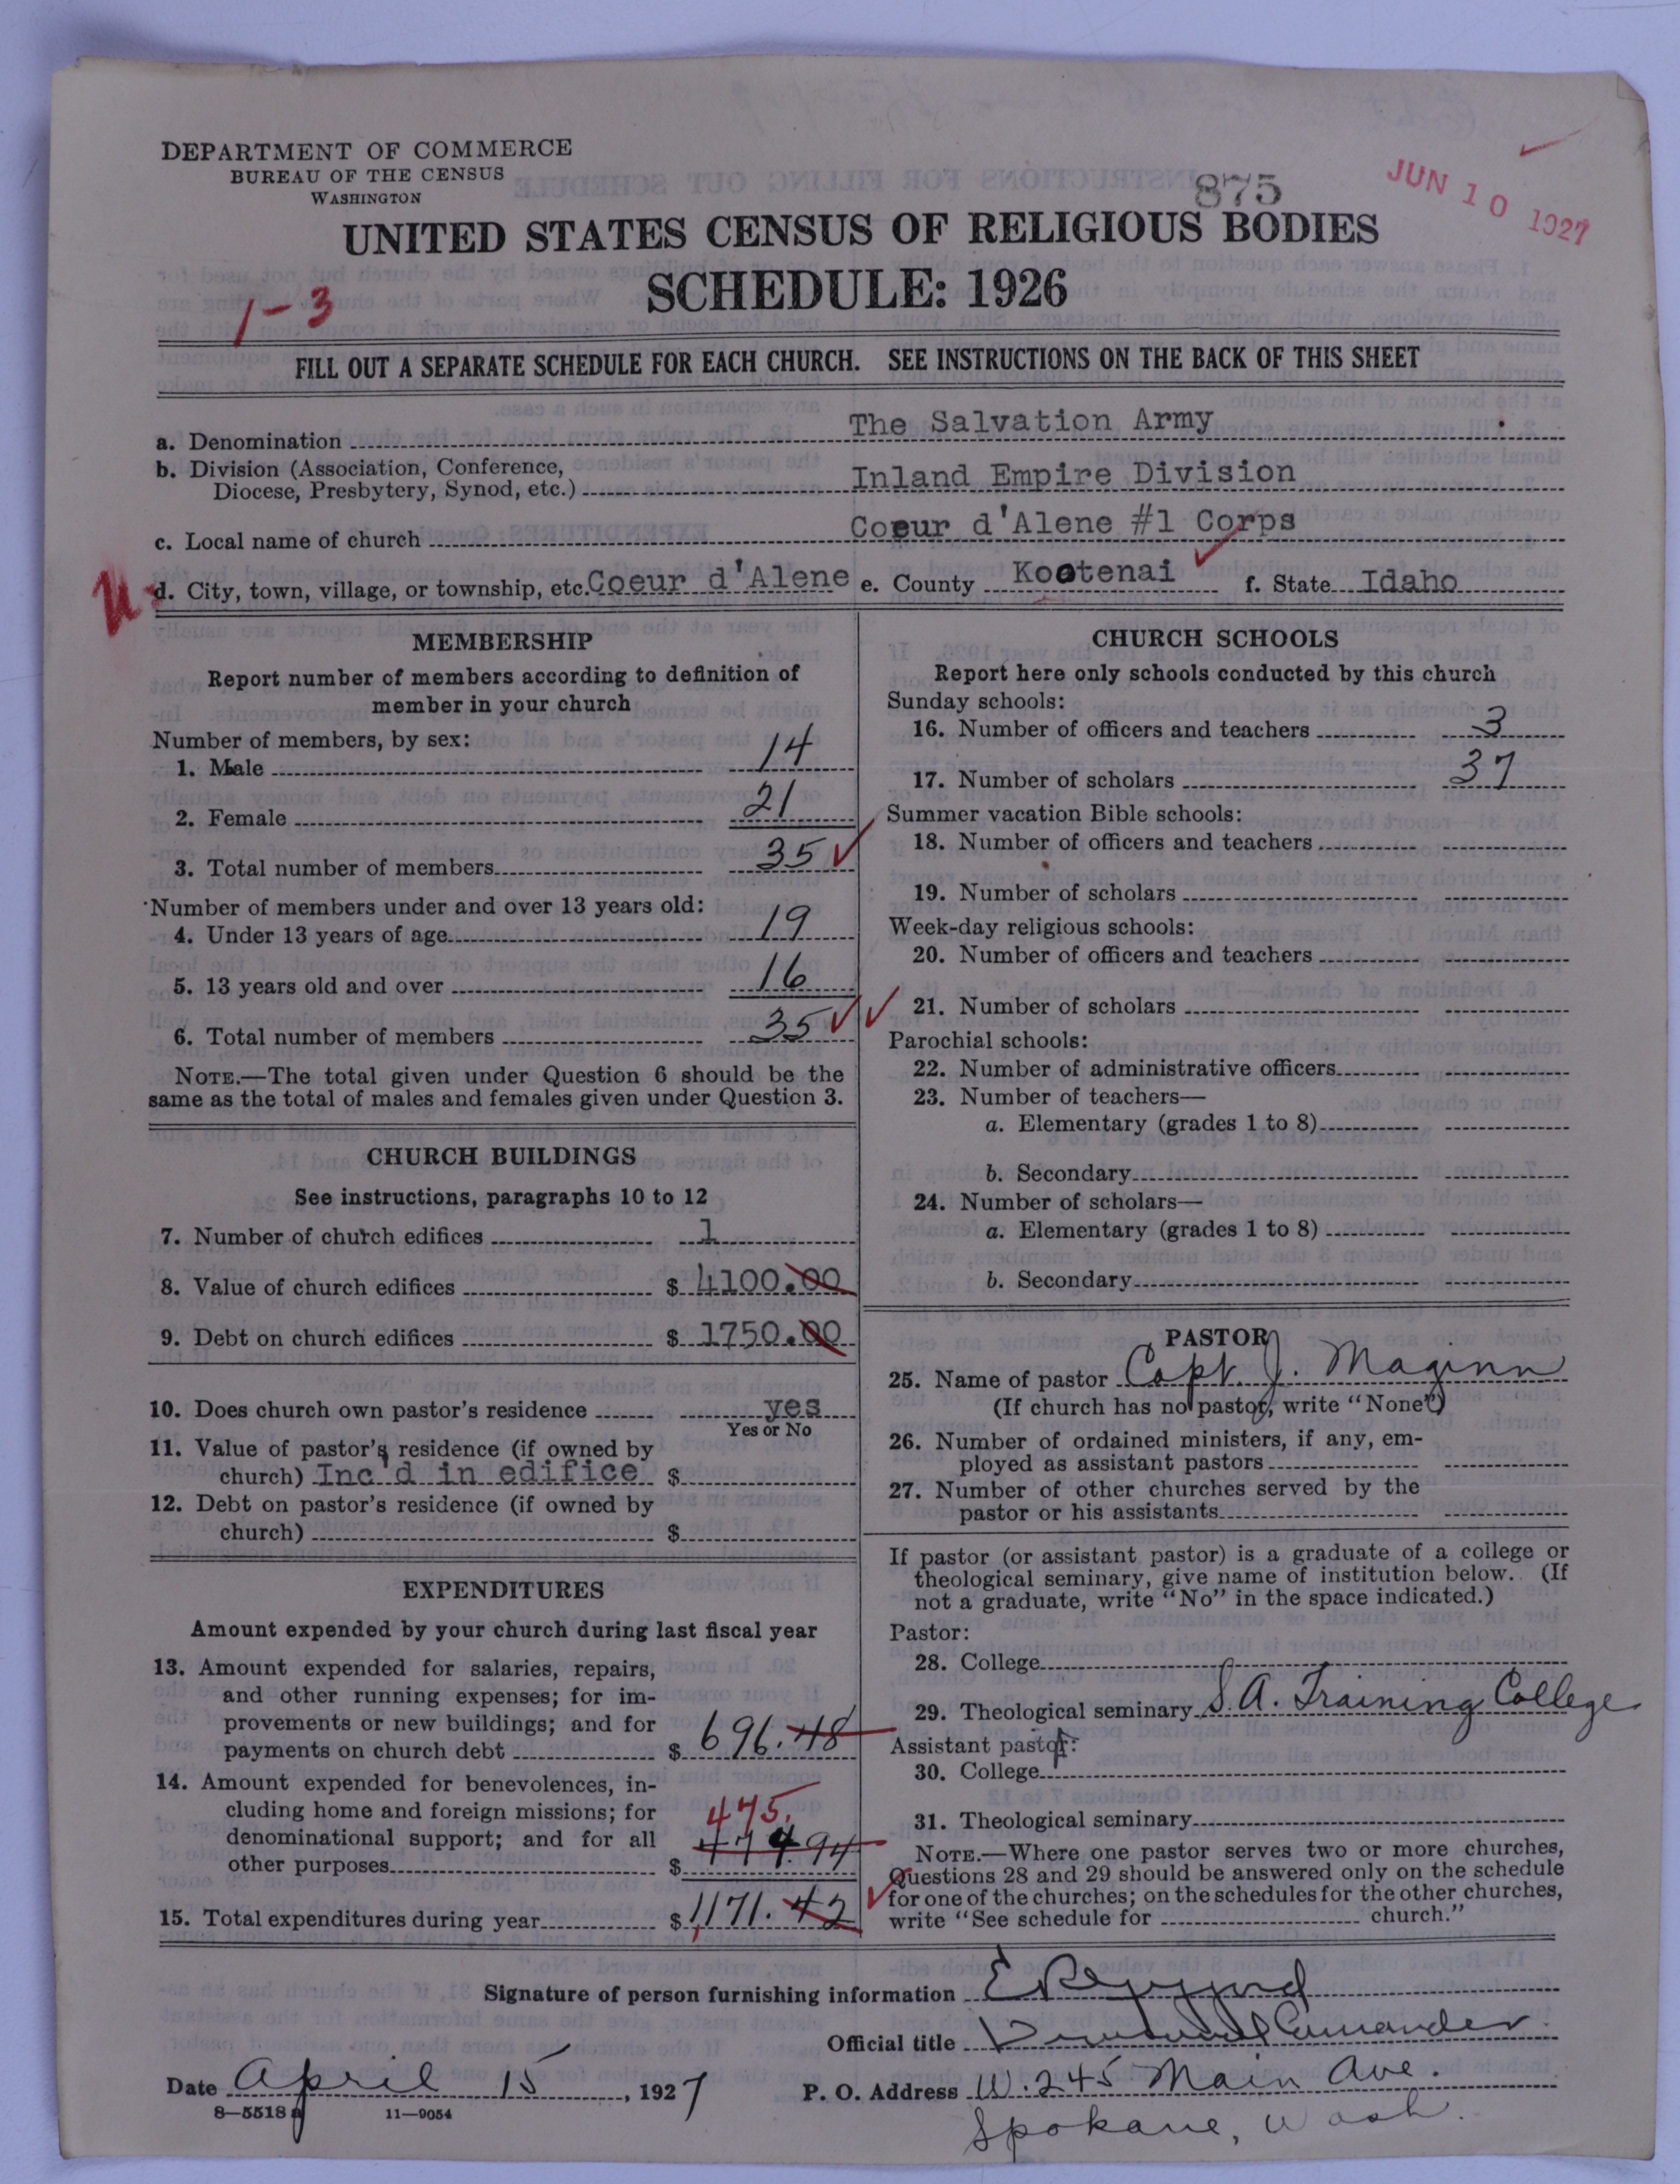 DEPARTMENT OF COMMERCE
BUREAU OF THE CENSUS
WASHINGTON
875
JUN 10 1927
UNITED STATES CENSUS OF RELIGIOUS BODIES
SCHEDULE: 1926
1-3
FILL OUT A SEPARATE SCHEDULE FOR EACH CHURCH. SEE INSTRUCTIONS ON THE BACK OF THIS SHEET
a. Denomination The Salvation Army
b. Division (Association, Conference,
Diocese, Presbytery, Synod, etc.) Inland Empire Division
c. Local name of church Coeur d'Alene #1 Corps
d. City, town, village, or township, etc. Coeur d'Alene e. County Kootenai f. State Idaho
MEMBERSHIP
Report number of members according to definition of
member in your church
Number of members, by sex:
1. Male 14
2. Female 21
3. Total number of members 35
Number of members under and over 13 years old:
4. Under 13 years of age 19
5. 13 years old and over 16
6. Total number of members 35
NOTE.—The total given under Question 6 should be the
same as the total of males and females given under Question 3.
CHURCH BUILDINGS
See instructions, paragraphs 10 to 12
7. Number of church edifices 1
8. Value of church edifices $ 4100.00
9. Debt on church edifices $ 1750.00
10. Does church own pastor's residence yes
Yes or No
11. Value of pastor's residence (if owned by
church) Inc'd in edifice $
12. Debt on pastor's residence (if owned by
church) $
EXPENDITURES
Amount expended by your church during last fiscal year
13. Amount expended for salaries, repairs,
and other running expenses; for im-
provements or new buildings; and for
payments on church debt $ 696.48
14. Amount expended for benevolences, in-
cluding home and foreign missions; for
475.
denominational support; and for all
other purposes $ 474.94
15. Total expenditures during year $ 1,171.42
CHURCH SCHOOLS
Report here only schools conducted by this church
Sunday schools:
16. Number of officers and teachers 3
17. Number of scholars 37
Summer vacation Bible schools:
18. Number of officers and teachers
19. Number of scholars
Week-day religious schools:
20. Number of officers and teachers
21. Number of scholars
Parochial schools:
22. Number of administrative officers
23. Number of teachers—
a. Elementary (grades 1 to 8)
b. Secondary
24. Number of scholars—
a. Elementary (grades 1 to 8)
b. Secondary
PASTOR
25. Name of pastor Capt. J. Maginn
(If church has no pastor, write "None")
26. Number of ordained ministers, if any, em-
ployed as assistant pastors
27. Number of other churches served by the
pastor or his assistants
If pastor (or assistant pastor) is a graduate of a college or
theological seminary, give name of institution below. (If
not a graduate, write "No" in the space indicated.)
Pastor:
28. College
29. Theological seminary S.A. Training College
Assistant pastor:
30. College
31. Theological seminary
NOTE.—Where one pastor serves two or more churches,
Questions 28 and 29 should be answered only on the schedule
for one of the churches; on the schedules for the other churches,
write "See schedule for church."
Signature of person furnishing information
Official title Commander
Date April 15, 1927 P. O. Address W. 245 Main Ave.
8—5518 a 11—9054
Spokane, Wash.